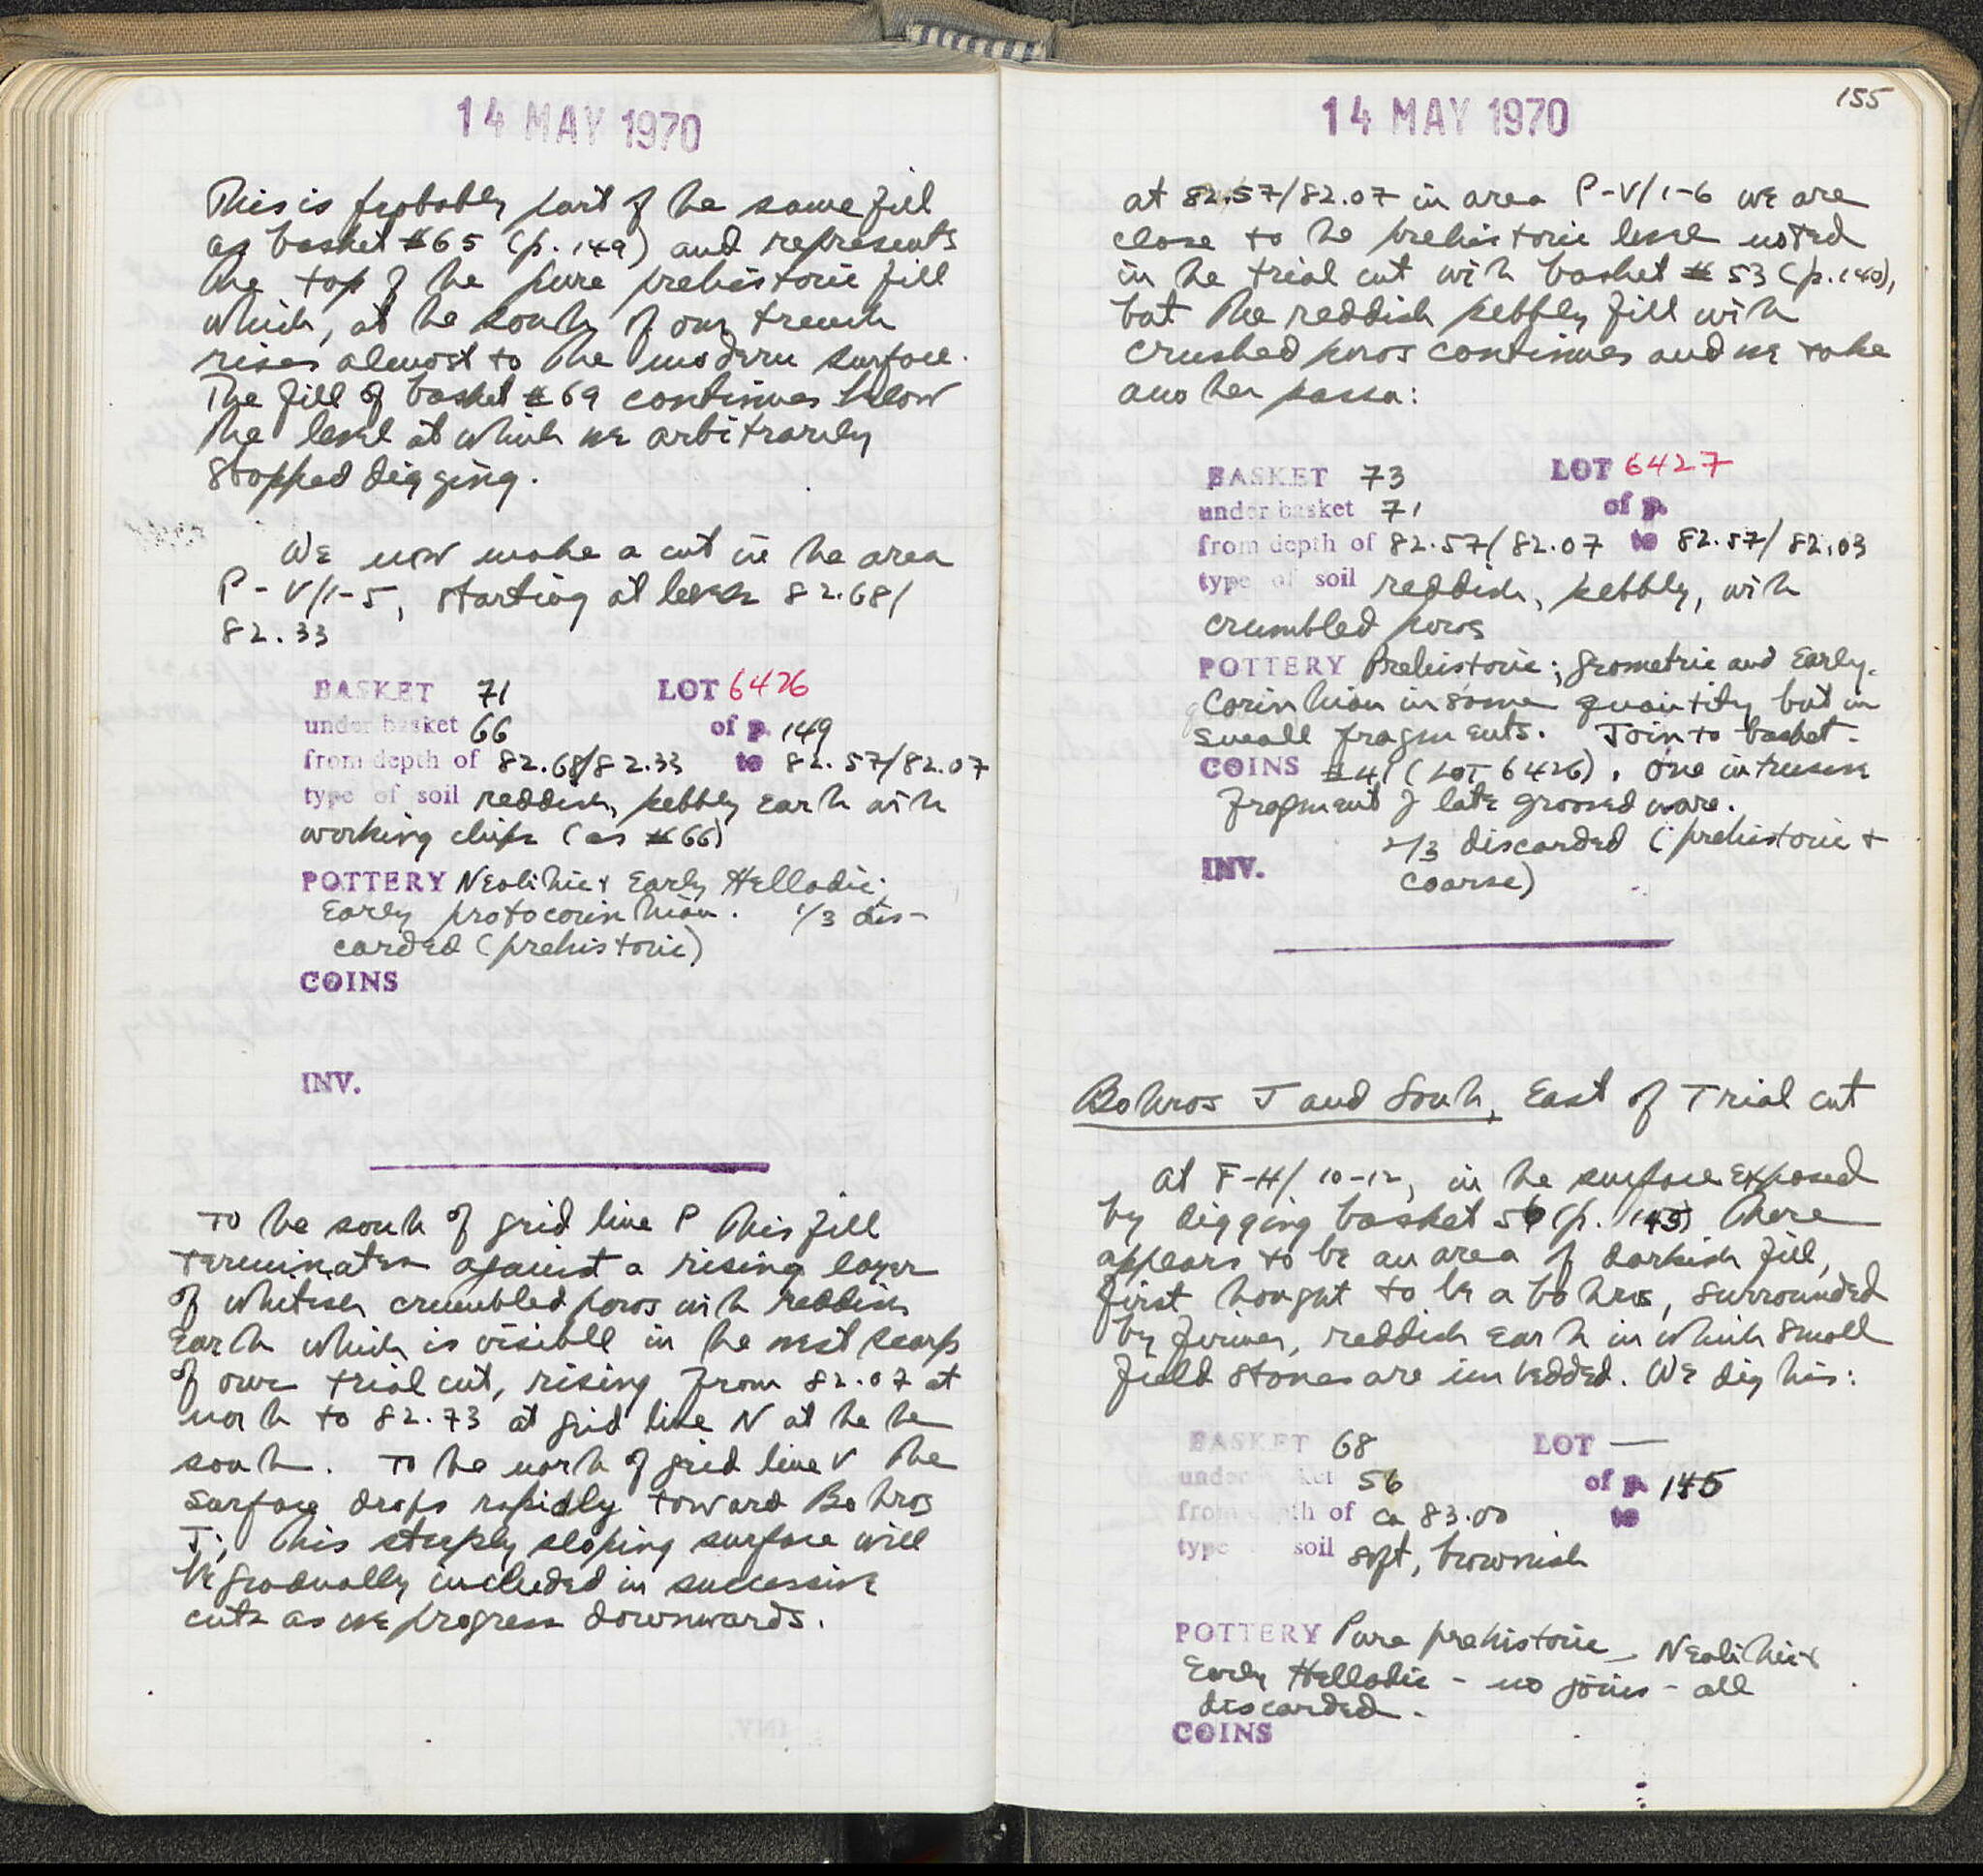 14 MAY 1970
This is probably part of the same fill
as basket #65 (p. 149) and represents
the top of the pure prehistoric fill
which, at the south of our trench
rises almost to the modern surface.
The fill of basket #69 continues below
the level at which we arbitrarily
stopped digging.
We now make a cut in the area
P-V/1-5, starting at levels 82.68/
82.33
BASKET 71 LOT 6426
under basket 66 of p. 149
from depth of 82.68/82.33 to 82.57/82.07
type of soil reddish, pebbly earth with
working chips (as #66)
POTTERY Neolithic + Early Helladic;
Early protocorinthian. 1/3 dis-
carded (prehistoric)
COINS
INV.
To the south of grid line P this fill
terminates against a rising layer
of whitish crumbled poros with reddish
earth which is visible in the west scarp
of our trial cut, rising from 82.07 at
north to 82.73 at grid line N at the the
south. To the north of grid line V the
surface drops rapidly toward Bothros
J; this steeply sloping surface will
be gradually included in successive
cuts as we progress downwards.
155
14 MAY 1970
at 82.57/82.07 in area P-V/1-6 we are
close to the prehistoric level noted
in the trial cut with basket #53 (p. 140),
but the reddish pebbly fill with
crushed poros continues and we take
another passa:
BASKET 73 LOT 6427
under basket 71 of p.
from depth of 82.57/82.07 to 82.57/82.03
type of soil reddish, pebbly, with
crumbled poros
POTTERY Prehistoric; Geometric and Early
Corinthian in some quantity but in
small fragments. Join to basket
COINS #41 (Lot 6426). One intrusive
fragment of late grooved ware.
2/3 discarded (prehistoric +
INV. coarse)
Bothros J and South, East of Trial cut
At F-H/10-12, in the surface exposed
by digging basket 56 (p. 145) there
appears to be an area of darkish fill,
first thought to be a bothros, surrounded
by firmer, reddish earth in which small
field stones are imbedded. We dig this:
BASKET 68 LOT —
under basket 56 of p. 145
from depth of ca 83.00 to
type of soil soft, brownish
POTTERY Pure prehistoric – Neolithic +
Early Helladic – no joins – all
discarded.
COINS